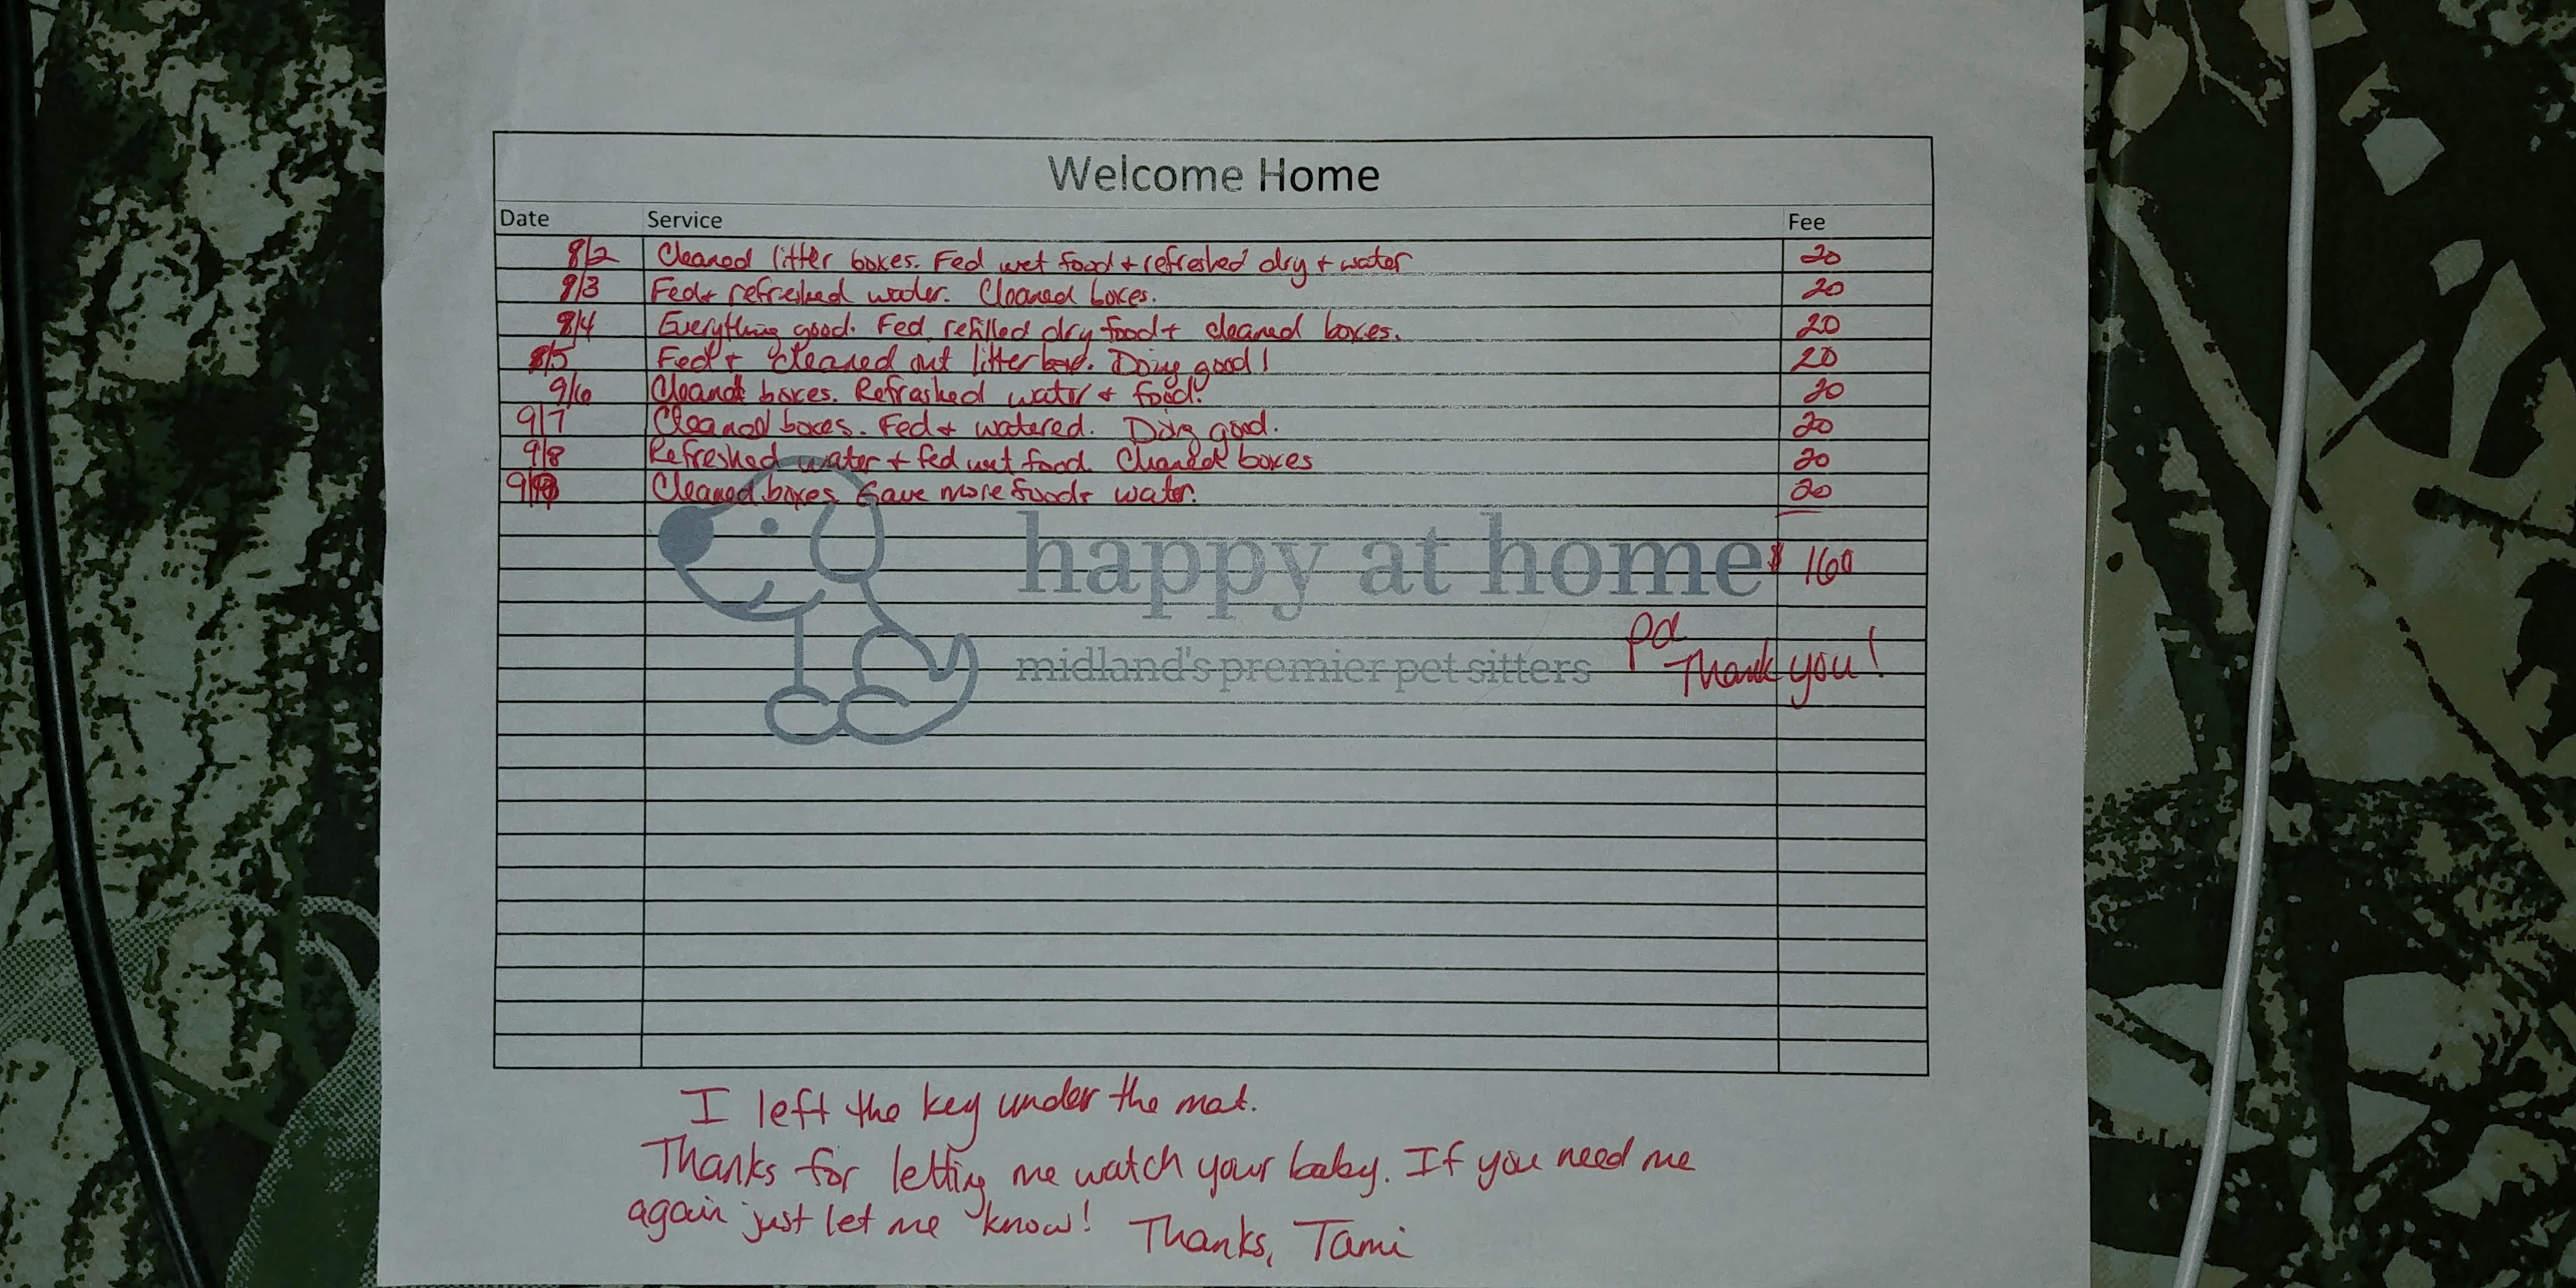 Welcome Home
Date Service Fee
8/2 Cleaned litter boxes. Fed wet food + refreshed dry + water 20
8/3 Fed + refreshed water. Cleaned boxes. 20
8/4 Everything good. Fed, refilled dry food + cleaned boxes. 20
8/5 Fed + cleaned out litter box. Doing good! 20
9/6 Cleaned boxes. Refreshed water + food. 20
9/7 Cleaned boxes. Fed + watered. Doing good. 20
9/8 Refreshed water + fed wet food. Cleaned boxes 20
Cleaned boxes. Gave more food + water. 20
happy at home $ 160
midland's premier pet sitters
pd
Thank you!
I left the key under the mat.
Thanks for letting me watch your baby. If you need me
again just let me know! Thanks, Tami